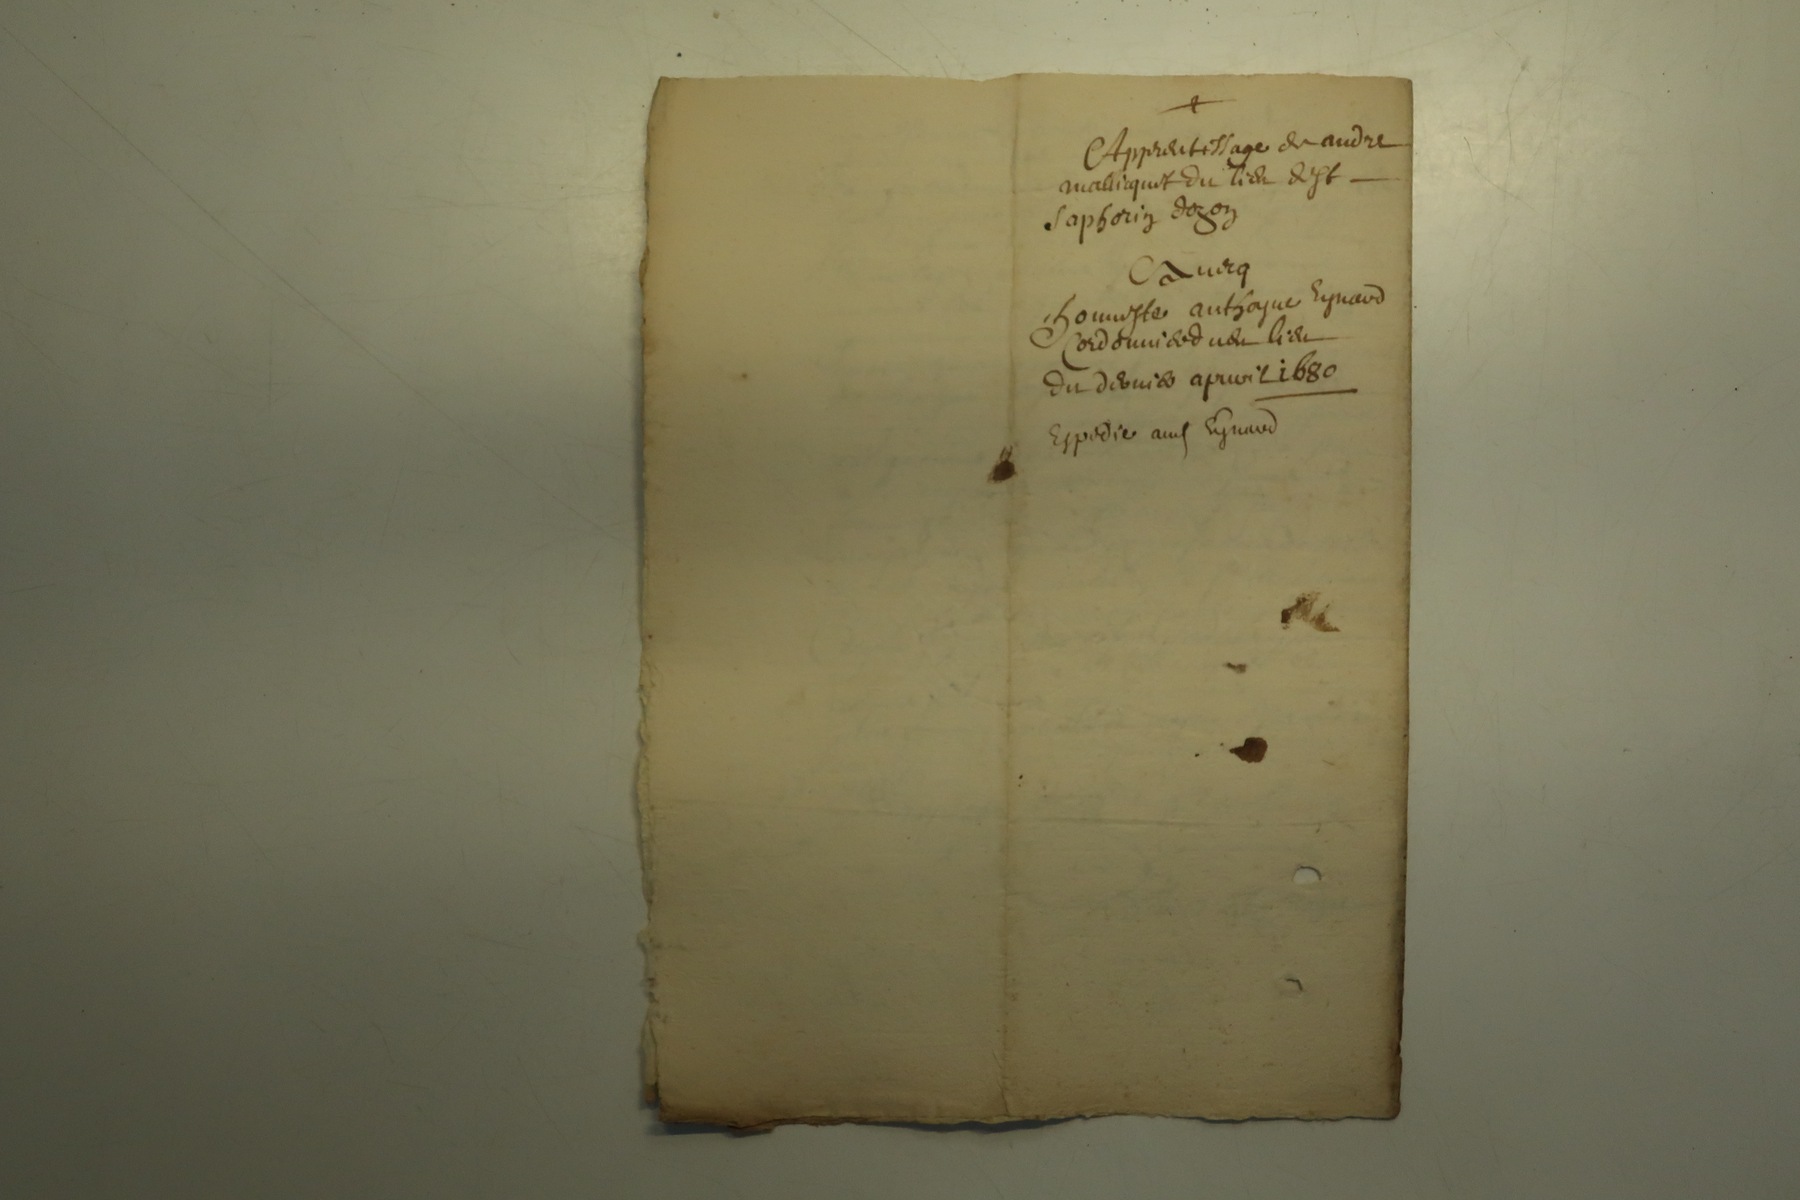 +
Apprentissage de andre
mallicquet du lieu de st
Saphorin dozon
Auecq
honneste anthoyne Eynard
Cordonnier dud lieu
du dernier apvril 1680
Expedie aud Eynard